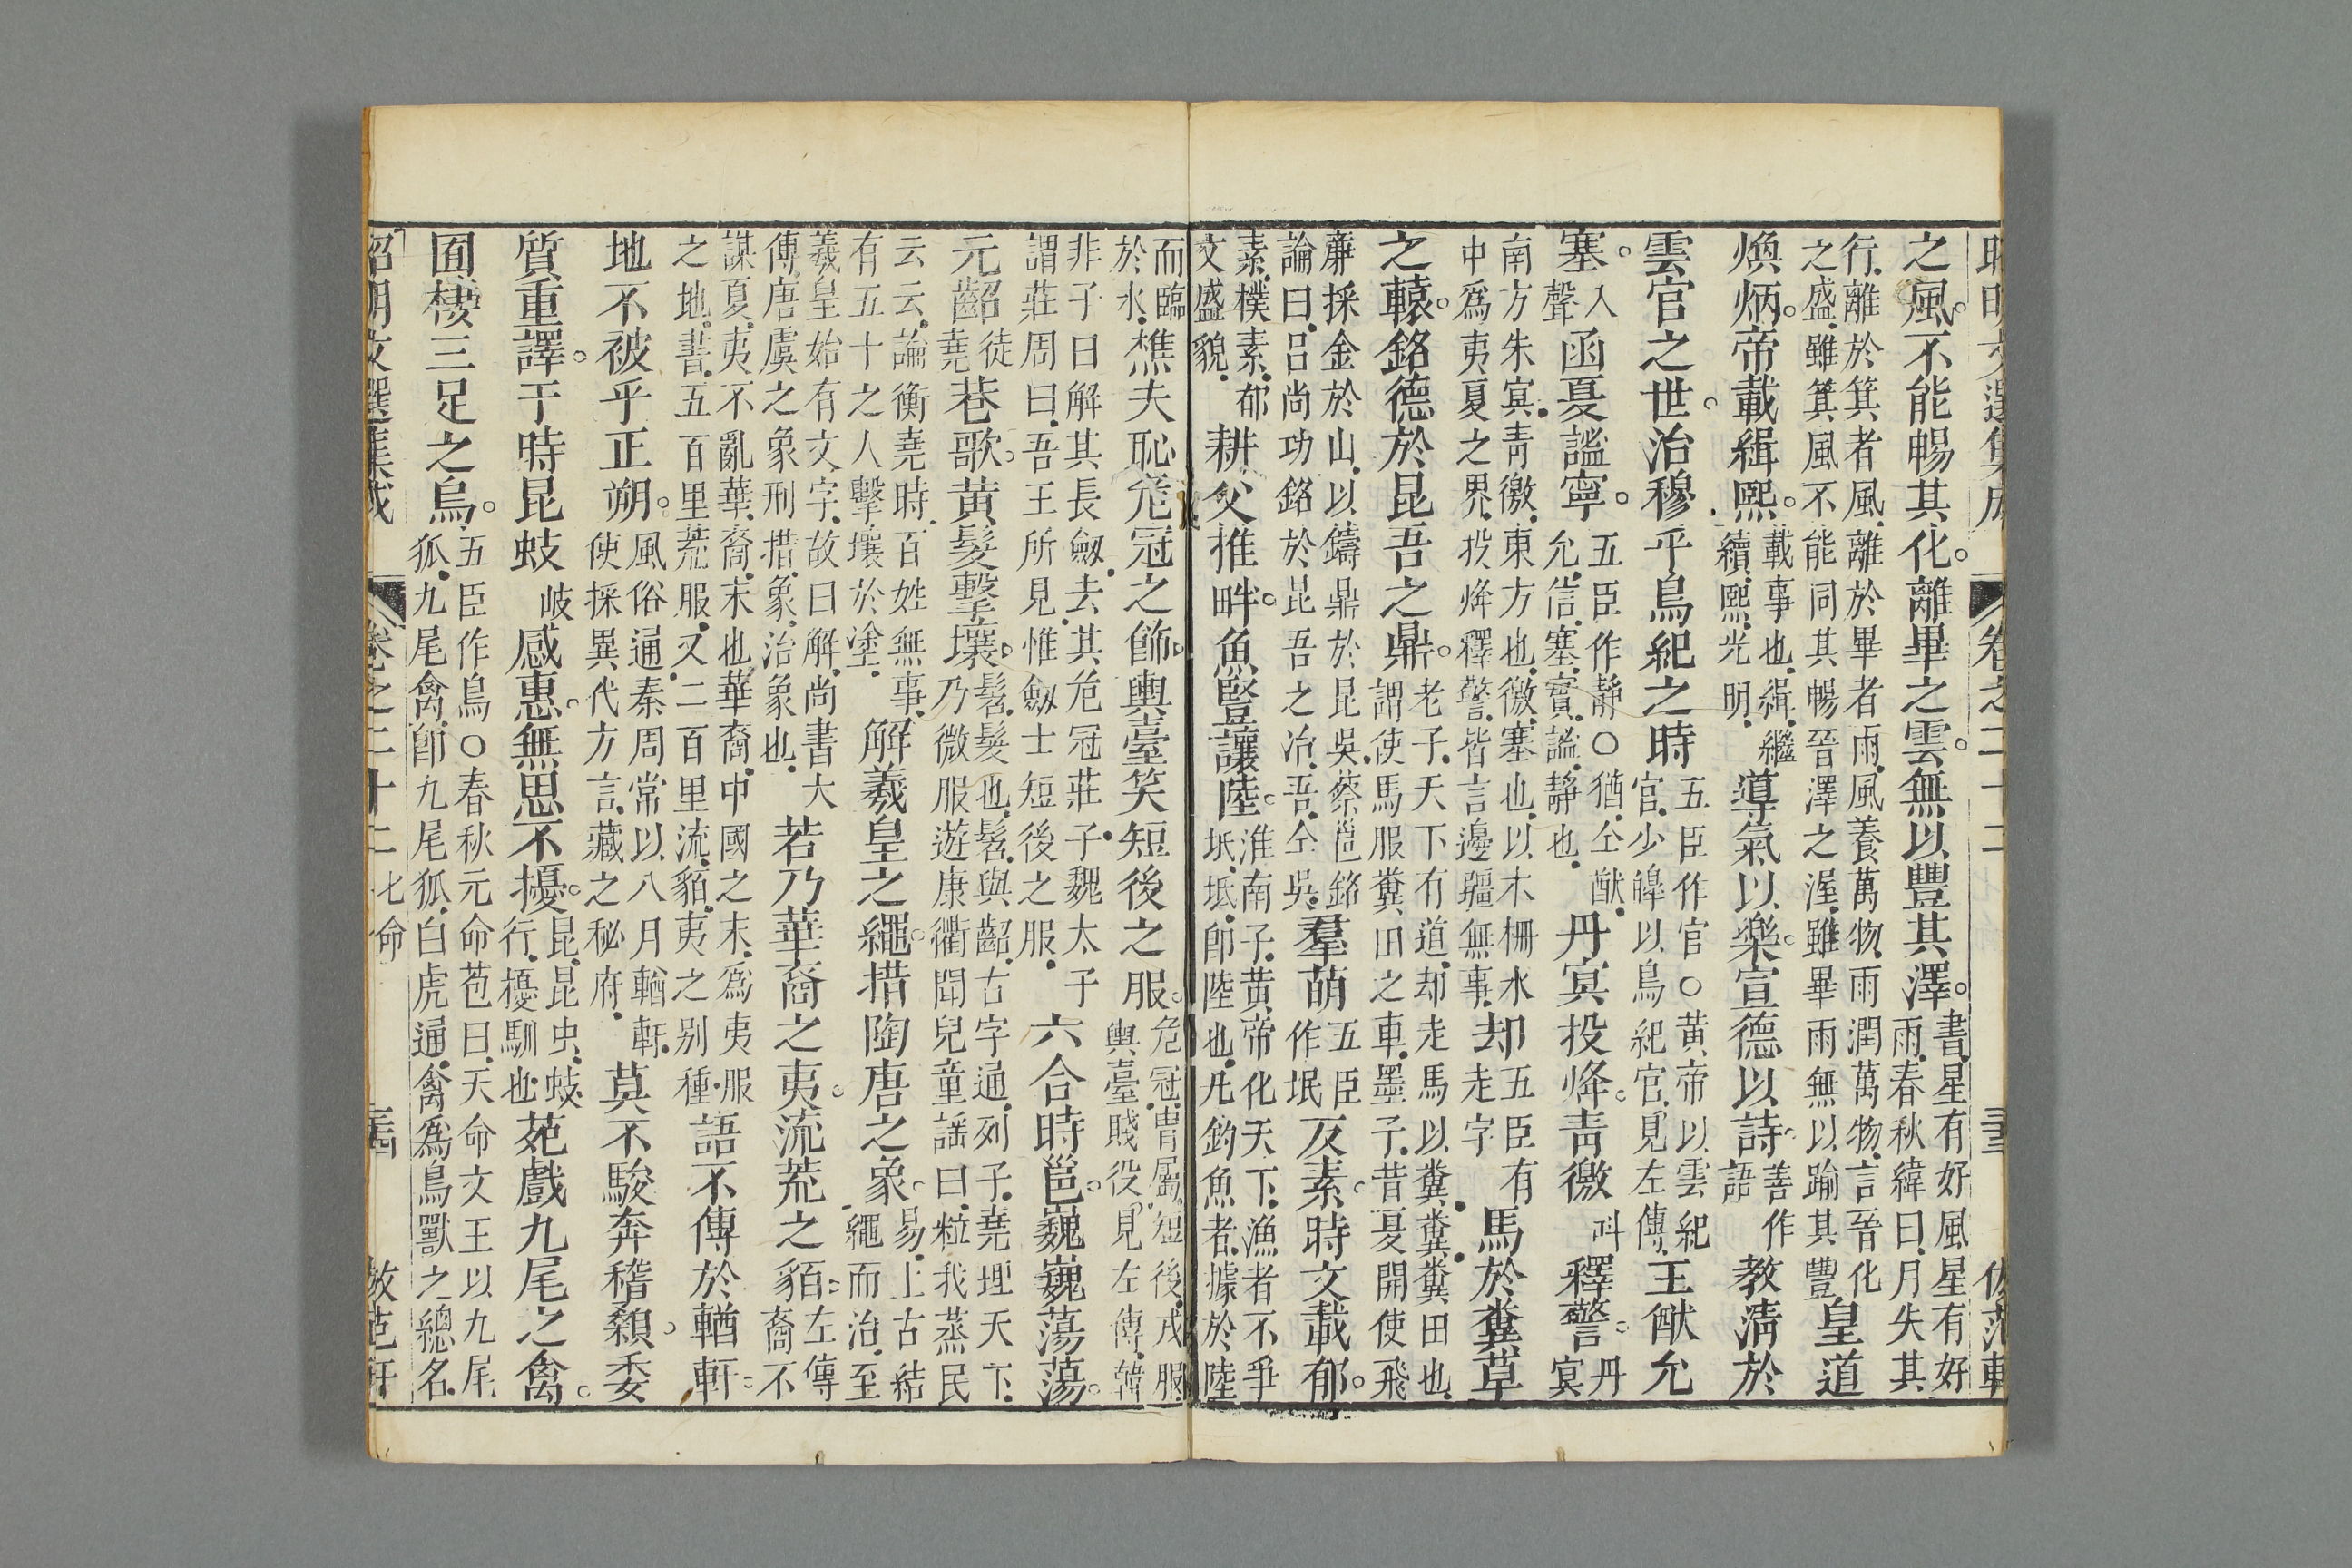 昭明文選集成 卷之二十二
之風。不能暢其化。離畢之雲。無以豐其澤。書星有好風星有好雨春秋緯曰月失其
行離於箕者風離於畢者雨風養萬物雨潤萬物言晉化之盛雖箕風不能同其暢晉澤之渥雖畢雨無以踰其豐皇道
煥炳。帝載緝熙。載事也緝繼續熙光明導氣以樂。宣德以詩。善作語教清於
雲官之世。治穆乎鳥紀之時五臣作官○黃帝以雲紀官少皞以鳥紀官見左傳王猷允
塞。入聲函夏謐寧。五臣作靜○猶仝猷允信塞實謐靜也丹冥投烽。青徼呌釋警。丹冥
南方朱冥青徼東方也徼塞也以木柵水中爲夷夏之界投烽釋警皆言邊疆無事却五臣有走字馬於糞草
之轅。銘德於昆吾之鼎。老子天下有道却走馬以糞糞糞田也謂使馬服糞田之車墨子昔夏開使飛
廉採金於山以鑄鼎於昆吳蔡邕銘論曰呂尚功銘於昆吾之冶吾仝吳羣萌五臣作氓反素。時文載郁。
素樸素郁文盛貌耕父推畔。魚豎讓陸。淮南子黃帝化天下漁者不爭坻坻卽陸也凡釣魚者據於陸
而臨於水樵夫恥危冠之飾。輿臺笑短後之服。危冠冑屬短後戎服輿臺賤役見左傳韓
非子曰解其長劒去其危冠莊子魏太子謂莊周曰吾王所見惟劒士短後之服六合時邕。巍巍蕩蕩。
元齠徒堯巷歌。黃髮擊壤。髫髮也髫與齠古字通列子堯理天下乃微服遊康衢聞兒童謡曰粒我蒸民
云云論衡堯時百姓無事有五十之人擊壤於塗解羲皇之繩。措陶唐之象。易上古結繩而治至
羲皇始有文字故曰解尚書大傳唐虞之象刑措象治象也若乃華裔之夷。流荒之貊。左傳裔不
謀夏夷不亂華裔末也華裔中國之末爲夷服之地書五百里荒服又二百里流貊夷之別種語不傳於輶軒。
地不被乎正朔。風俗通秦周常以八月輶軒使採異代方言藏之秘府莫不駿奔稽顙。委
質重譯。于時昆蚑岐感惠。無思不擾。昆昆虫蚑行擾馴也苑戲九尾之禽。
囿棲三足之烏。五臣作鳥○春秋元命苞曰天命文王以九尾狐九尾禽卽九尾狐白虎通禽爲鳥獸之總名
昭明文選集成 卷之二十二 七命